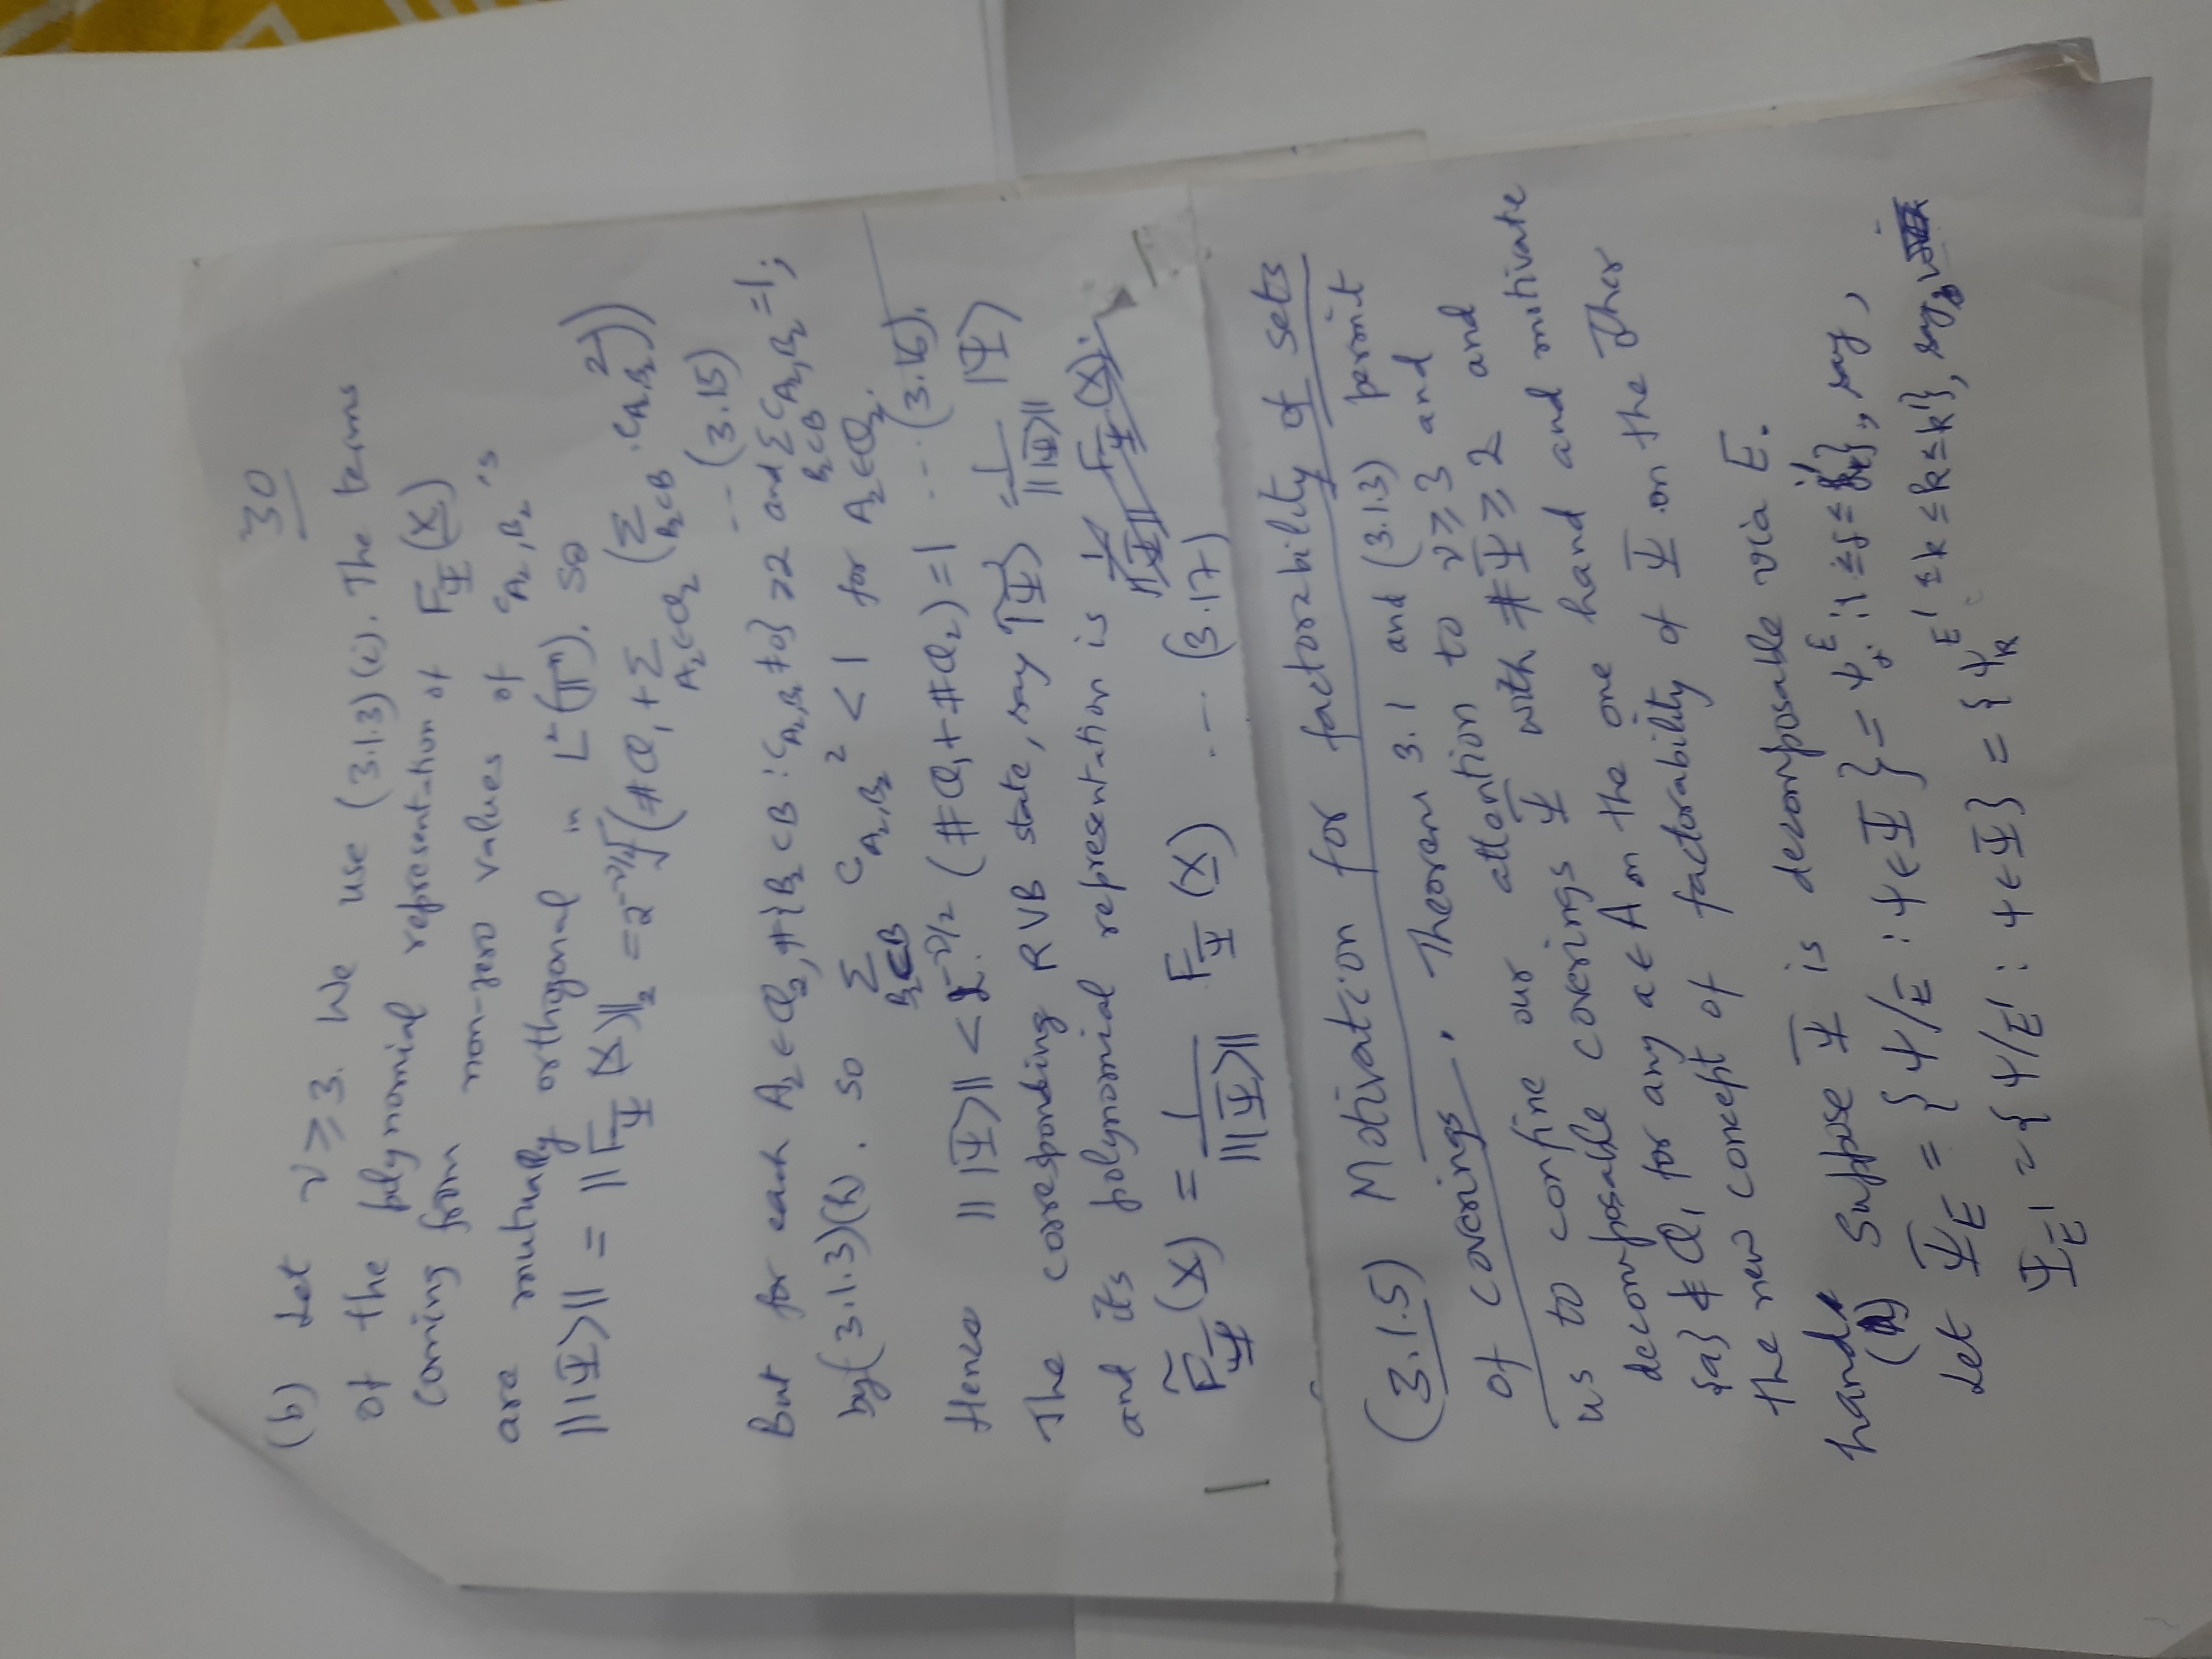 30
(b) Let ν ≥ 3. We use (3.1.3)(i). The terms
of the polynomial representation of F_Ψ(X)
coming from non-zero values of c_{A₂,B₂}'s
are mutually orthogonal in L²(𝕋ⁿ). So
|||Ψ>|| = ||F_Ψ(X)||₂ = 2^{-ν/2}√(#Q₁ + Σ_{A₂∈Q₂} (Σ_{B₂⊂B} c_{A₂,B₂}²))
--- (3.15)
But for each A₂ ∈ Q₂, #{B₂ ⊂ B : c_{A₂,B₂} ≠ 0} ≥ 2 and Σ_{B₂⊂B} c_{A₂,B₂} = 1;
by (3.1.3)(h). So Σ_{B₂⊂B} c_{A₂,B₂}² < 1 for A₂ ∈ Q₂.
Hence || |Ψ>|| < 2^{-ν/2} (#Q₁ + #Q₂) = 1 --- (3.16).
The corresponding RVB state, say |Ψ̃> = 1/|||Ψ>|| |Ψ>
and its polynomial representation is
F̃_Ψ(X) = 1/|||Ψ>|| F_Ψ(X) ---- (3.17)
(3.1.5) Motivation for factorability of sets
of coverings. Theorem 3.1 and (3.1.3) permit
us to confine our attention to ν ≥ 3 and
decomposable coverings Ψ with #Ψ ≥ 2 and
{a} ∉ Q₁ for any a ∈ A on the one hand and motivate
the new concept of factorability of Ψ on the other
hand.
Suppose Ψ is decomposable via E.
Let Ψ_E = {ψ/E : ψ ∈ Ψ} = ψ_j^E : 1 ≤ j ≤ j'}, say,
Ψ_{E'} = {ψ/E' : ψ ∈ Ψ} = {ψ_k^{E'} ≤ k ≤ k'}, say,